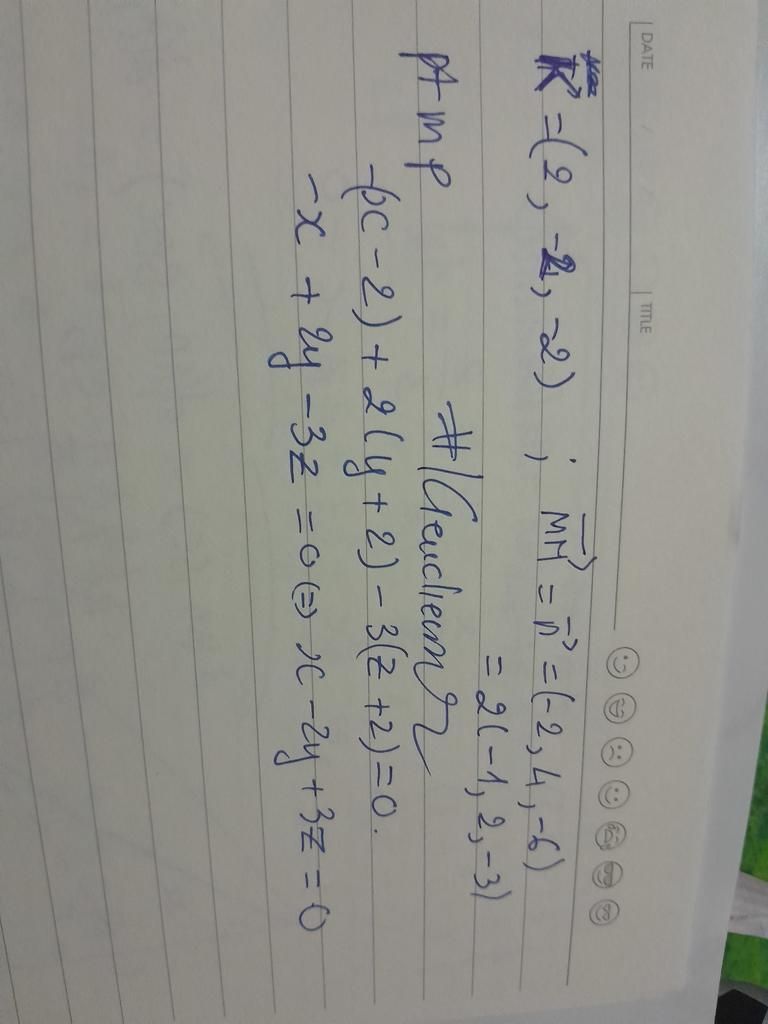 DATE TITLE
K = (2, -2, -2) ; MM' = n = (-2, 4, -6)
= 2(-1, 2, -3)
Pt mp
-(x - 2) + 2(y + 2) - 3(z + 2) = 0.
-x + 2y - 3z = 0 (=) x - 2y + 3z = 0